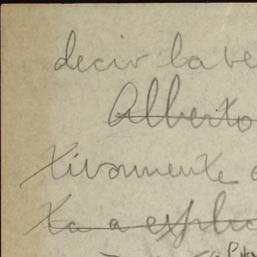 decir la ve
Alberto
tivamente
ta a explic